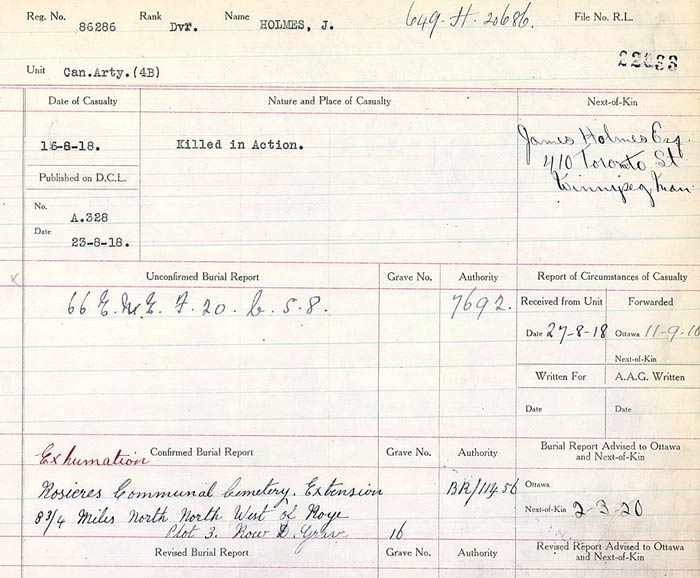 Reg. No. 86286 Rank Dvr. Name HOLMES, J. 649-H-20686. File No. R.L.
Unit Can.Arty.(4B)
Date of Casualty Nature and Place of Casualty Next-of-Kin
16-8-18. Killed in Action. James Holmes Esq.
410 Toronto St
Winnipeg Man
Published on D.C.L.
No. A.328
Date 23-8-18.
Unconfirmed Burial Report Grave No. Authority Report of Circumstances of Casualty
66 E. N.E. F. 20. b. 5.8. 7692.
Received from Unit Forwarded
Date 27-8-18 Ottawa 11-9-18
Next-of-Kin
Written For A.A.G. Written
Date Date
Exhumation Confirmed Burial Report Grave No. Authority Burial Report Advised to Ottawa and Next-of-Kin
Rosieres Communal Cemetery. Extension BR/11456 Ottawa
8 3/4 Miles North North West of Roye Next-of-Kin 2-3-20
Plot 3. Row D. Grav 16
Revised Burial Report Grave No. Authority Revised Report Advised to Ottawa and Next-of-Kin